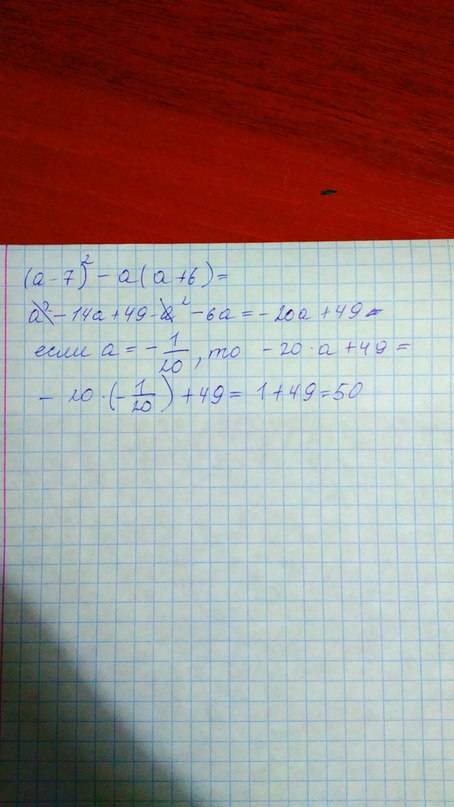 (a-7)² - a(a+6)=
a² - 14a + 49 - a² - 6a = - 20a + 49 =
если a = - 1/20, то - 20·a + 49 =
- 20·(- 1/20) + 49 = 1 + 49 = 50